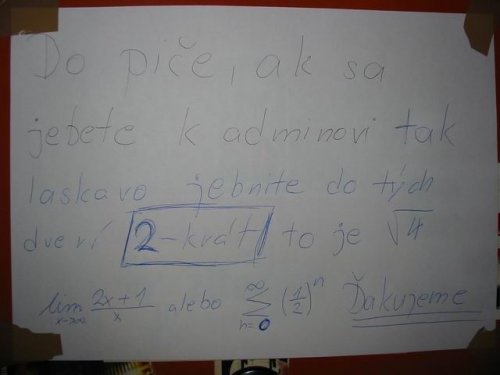 Do piče, ak sa
jebete k adminovi tak
laskavo jebnite do tých
dverí 2-krát to je √4
lim x→∞ (2x+1)/x alebo ∞ ∑ n=0 (1/2)^n Ďakujeme